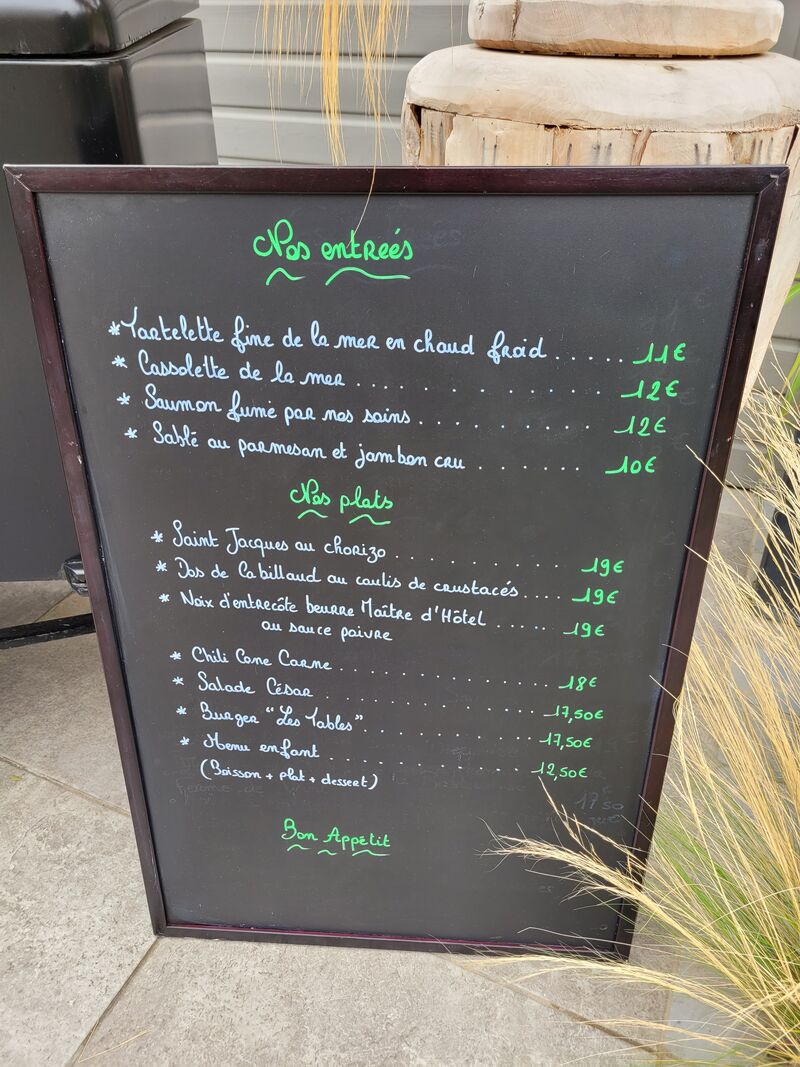 Nos entreés
*Tartelette fine de la mer en chaud froid ...... 11€
* Cassolette de la mer ............ 12€
* Saumon fumé par nos soins .......... 12€
* Sablé au parmesan et jambon cru ....... 10€
Nos plats
* Saint Jacques au chorizo .......... 19€
* Dos de Cabillaud au coulis de crustacés .... 19€
* Noix d'entrecôte beurre Maître d'Hôtel ..... 19€
ou sauce poivre
* Chili Cone Carne ............ 18€
* Salade César ............ 17,50€
* Burger "Les Tables" ............ 17,50€
* Menu enfant ............ 12,50€
(Boisson + plat + dessert)
Bon Appétit